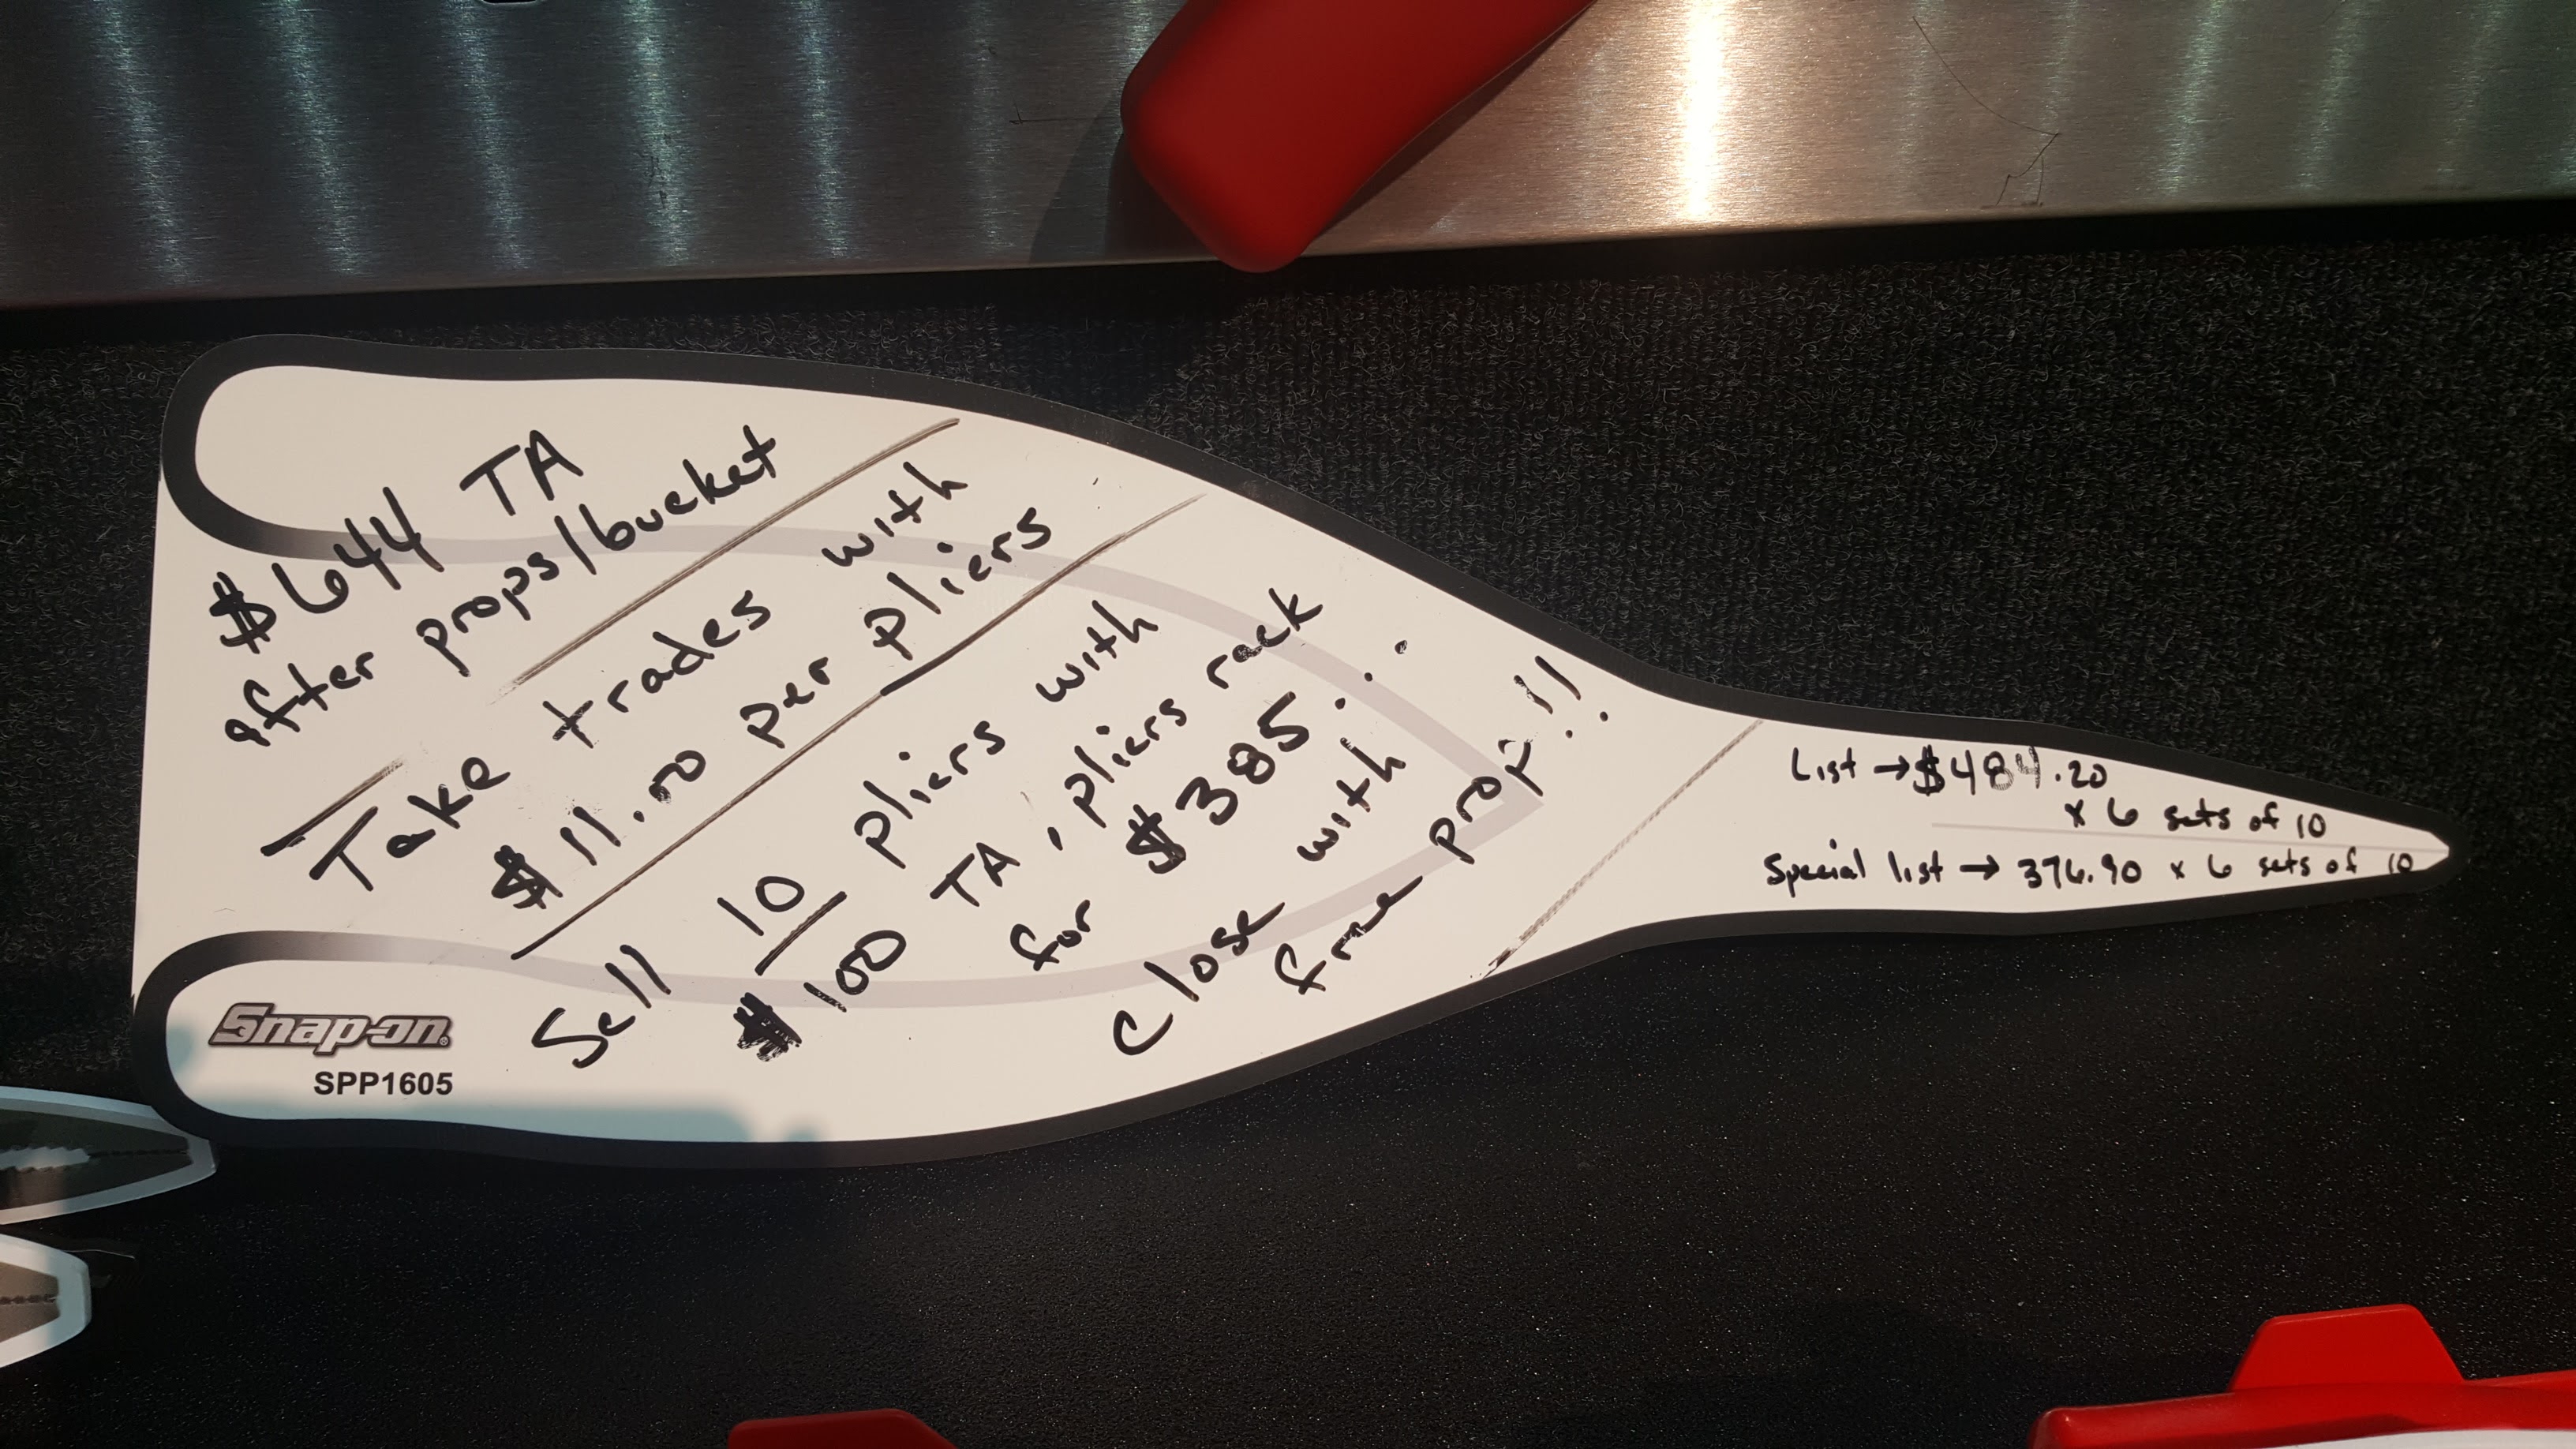 $644 TA
after props/bucket
Take trades with
$11.00 per pliers
Sell 10 pliers with
$100 TA, pliers rack
for $385...
Close with
free prop!!
List → $484.20
x 6 sets of 10
Special list → 376.90 x 6 sets of 10
Snap-on
SPP1605